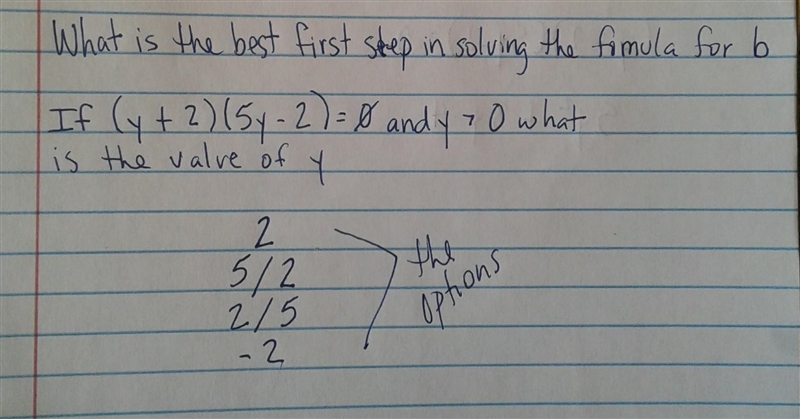 What is the best first step in solving the fomula for b
If (y + 2)(5y - 2) = 0 and y > 0 what
is the valve of y
2
5/2
2/5
- 2
the
options